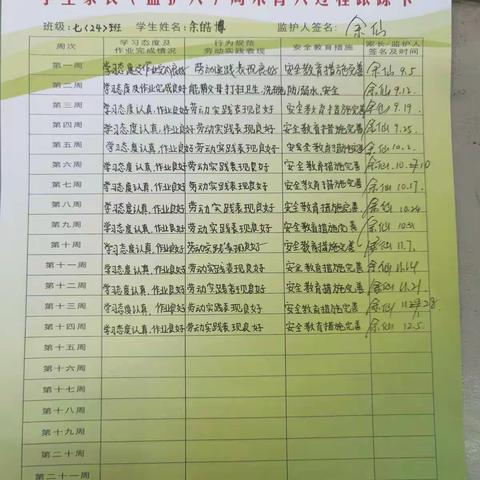 学生家长（监护人）周末育人过程跟踪卡
班级:七(24)班 学生姓名:余皓博 监护人签名: 余仙
周次 学习态度及作业完成情况 行为规范劳动实践表现 安全教育措施 家长、监护人签名及时间
第一周 学习态度及作业完成良好 劳动实践表现良好 安全教育措施完善 余仙 9.5
第二周 学习态度及作业完成良好 能帮父母打扫卫生、洗碗 防溺水、安全 余仙 9.12.
第三周 学习态度认真,作业良好 劳动实践表现良好 安全教育措施完善 余仙 9.19.
第四周 学习态度认真,作业良好 劳动实践表现良好 安全教育措施完善 余仙 9.25.
第五周 学习态度认真,作业良好 劳动实践表现良好 安全教育措施完善 余仙 10.2.
第六周 学习态度认真,作业良好 劳动实践表现良好 安全教育措施完善 余仙
第七周 学习态度认真,作业良好 劳动实践表现良好 安全教育措施完善 余仙 10.17.
第八周 学习态度认真,作业良好 劳动实践表现良好 安全教育措施完善 余仙 10.24
第九周 学习态度认真,作业良好 劳动实践表现良好 安全教育措施完善 余仙 10.31
第十周 学习态度认真,作业良好 劳动实践表现良好 安全教育措施完善 余仙 11.7.
第十一周 学习态度认真,作业良好 劳动实践表现良好 安全教育措施完善 余仙 11.14
第十二周 学习态度认真,作业良好 劳动实践表现良好 安全教育措施完善 余仙 11.21.
第十三周 学习态度认真,作业良好 劳动实践表现良好 安全教育措施完善 余仙
第十四周 学习态度认真,作业良好 劳动实践表现良好 安全教育措施完善 余仙 12.5.
第十五周
第十六周
第十七周
第十八周
第十九周
第二十周
第二十一周